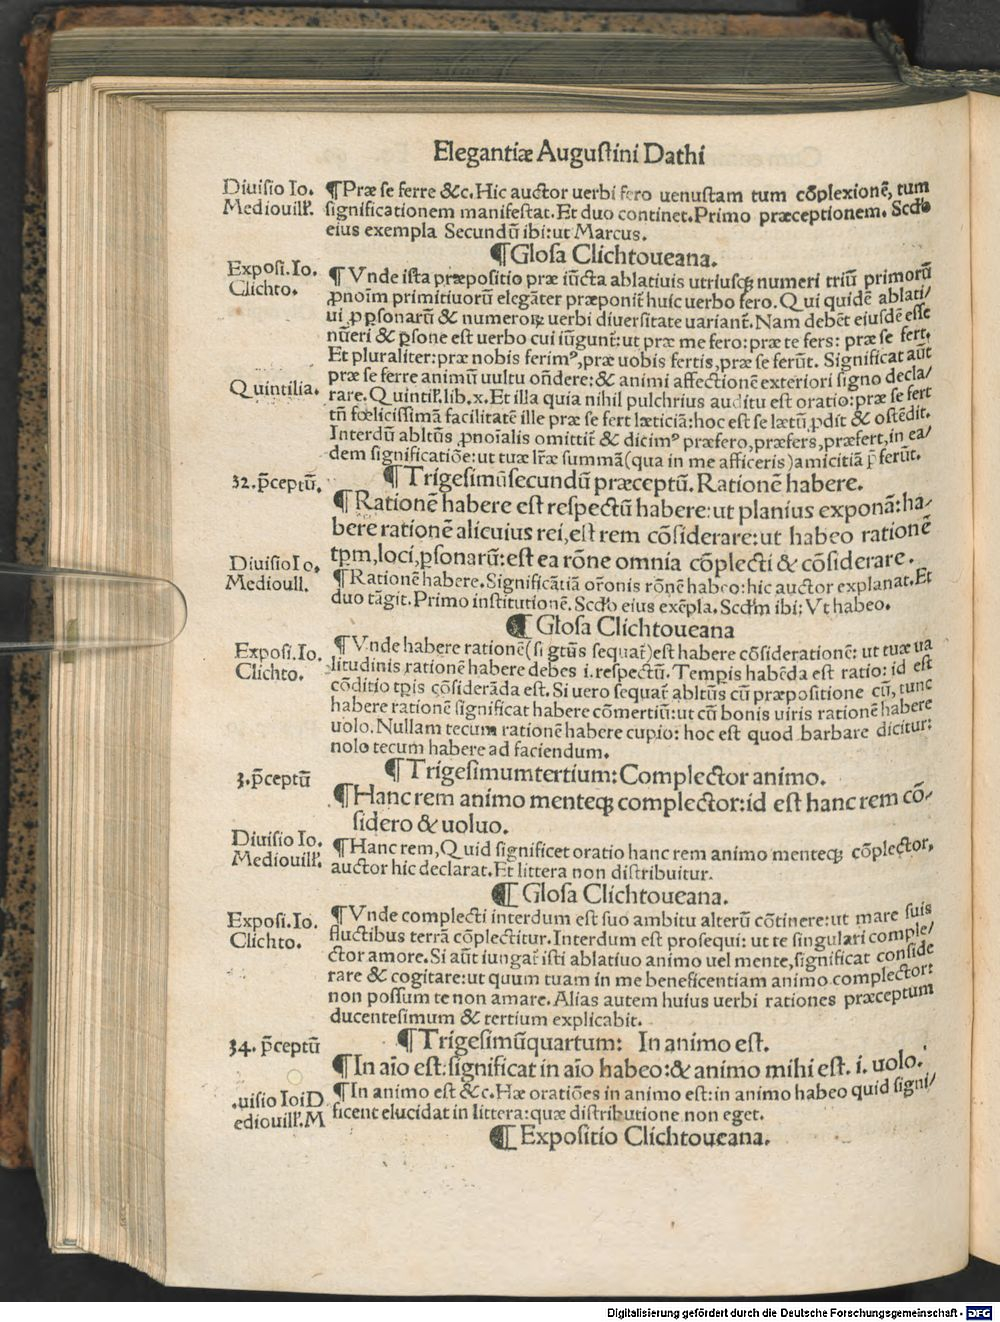 Elegantiæ Augustini Dathi
Diuisio Io.
Mediouilľ.
¶Præ se ferre &c. Hic auctor uerbi fero uenustam tum cõplexionẽ, tum
significationem manifestat. Et duo continet. Primo præceptionem. Scďo
eius exempla Secundũ ibi: ut Marcus.
¶Glosa Clichtoueana.
Exposi. Io.
Clichto.
¶Vnde ista præpositio præ iũcta ablatiuis utriusqꝫ numeri triũ primorũ
ꝓnoĩm primitiuorũ elegãter præponit̃ huic uerbo fero. Qui quidẽ ablati/
ui ꝓ ꝑsonarũ & numeroꝝ uerbi diuersitate uariant̃. Nam debẽt eiusdẽ esse
nũeri & ꝑsone est uerbo cui iũgunt̃: ut præ me fero: præ te fers: præ se fert.
Et pluraliter: præ nobis ferimꝰ, præ uobis fertis, præ se ferũt. Significat aũt
præ se ferre animũ uultu oñdere: & animi affectionẽ exteriori signo decla/
Quintilia.
rare. Quintiľ. lib. x. Et illa quia nihil pulchrius auditu est oratio: præ se fert
tñ fœlicissimã facilitatẽ ille præ se fert læticiã: hoc est se lætũ ꝓdit & ostẽdit.
Interdũ abltũs ꝓnoĩalis omittit̃ & dicimꝰ præfero, præfers, præfert, in ea/
dem significatiõe: ut tuæ lr̃æ summã (qua in me afficeris) amicitiã p̃ ferũt.
32. p̃ceptũ.
¶Trigesimũsecundũ præceptũ. Rationẽ habere.
¶Rationẽ habere est respectũ habere: ut planius exponã: ha/
bere rationẽ alicuius rei, est rem cõsiderare: ut habeo rationẽ
tꝑm, loci, ꝑsonarũ: est ea rõne omnia cõplecti & cõsiderare.
Diuisio Io.
Medioull.
¶Rationẽ habere. Significãtiã or̃onis rõnẽ habeo: hic auctor explanat. Et
duo tãgit. Primo institutionẽ. Scďo eius exẽpla. Scďm ibi: Vt habeo.
¶Glosa Clichtoueana
Exposi. Io.
Clichto.
¶Vnde habere rationẽ (si gtũs sequat̃) est habere cõsiderationẽ: ut tuæ ua
litudinis rationẽ habere debes i. respectũ. Tempĩs habẽda est ratio: id est
cõditio tꝑis cõsiderãda est. Si uero sequat̃ abltũs cũ præpositione cũ, tunc
habere rationẽ significat habere cõmertiũ: ut cũ bonis uiris rationẽ habere
uolo. Nullam tecum rationẽ habere cupio: hoc est quod barbare dicitur:
nolo tecum habere ad faciendum.
3. p̃ceptũ
¶Trigesimumtertium: Complector animo.
¶Hanc rem animo menteqꝫ complector: id est hanc rem cõ/
sidero & uoluo.
Diuisio Io.
Mediouilľ.
¶Hanc rem, Quid significet oratio hanc rem animo menteqꝫ cõplector,
auctor hic declarat. Et littera non distribuitur.
¶Glosa Clichtoueana.
Exposi. Io.
Clichto.
¶Vnde complecti interdum est suo ambitu alterũ cõtinere: ut mare suis
fluctibus terrã cõplectitur. Interdum est prosequi: ut te singulari comple/
ctor amore. Si aũt iungat̃ isti ablatiuo animo uel mente, significat conside
rare & cogitare: ut quum tuam in me beneficentiam animo complector:
non possum te non amare. Alias autem huius uerbi rationes præceptum
ducentesimum & tertium explicabit.
34. p̃ceptũ
¶Trigesimũquartum: In animo est.
¶In aĩo est: significat in aĩo habeo: & animo mihi est. i. uolo.
.uisio IoiD
ediouilľ. M
¶In animo est &c. Hæ oratiões in animo est: in animo habeo quid signi/
ficent elucidat in littera: quæ distributione non eget.
¶Expositio Clichtoueana.
Digitalisierung gefördert durch die Deutsche Forschungsgemeinschaft - DFG